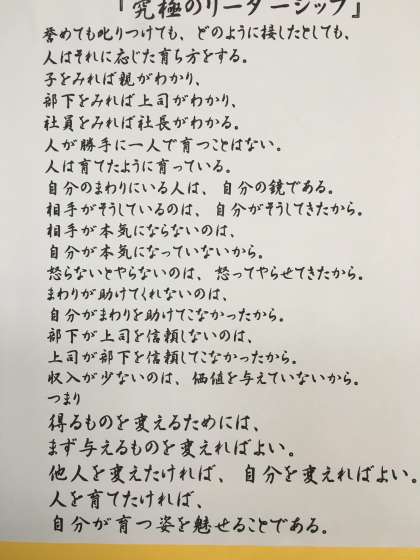 「究極のリーダーシップ」
誉めても叱りつけても、どのように接したとしても、
人はそれに応じた育ち方をする。
子をみれば親がわかり、
部下をみれば上司がわかり、
社員をみれば社長がわかる。
人が勝手に一人で育つことはない。
人は育てたように育っている。
自分のまわりにいる人は、自分の鏡である。
相手がそうしているのは、自分がそうしてきたから。
相手が本気にならないのは、
自分が本気になっていないから。
怒らないとやらないのは、怒ってやらせてきたから。
まわりが助けてくれないのは、
自分がまわりを助けてこなかったから。
部下が上司を信頼しないのは、
上司が部下を信頼してこなかったから。
収入が少ないのは、価値を与えていないから。
つまり
得るものを変えるためには、
まず与えるものを変えればよい。
他人を変えたければ、自分を変えればよい。
人を育てたければ、
自分が育つ姿を魅せることである。